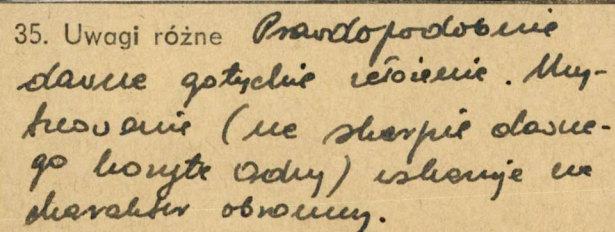 35. Uwagi różne Prawdopodobnie
dawne gotyckie założenie. Usy-
tuowanie (na skarpie dawne-
go koryta Odry) wskazuje na
charakter obronny.